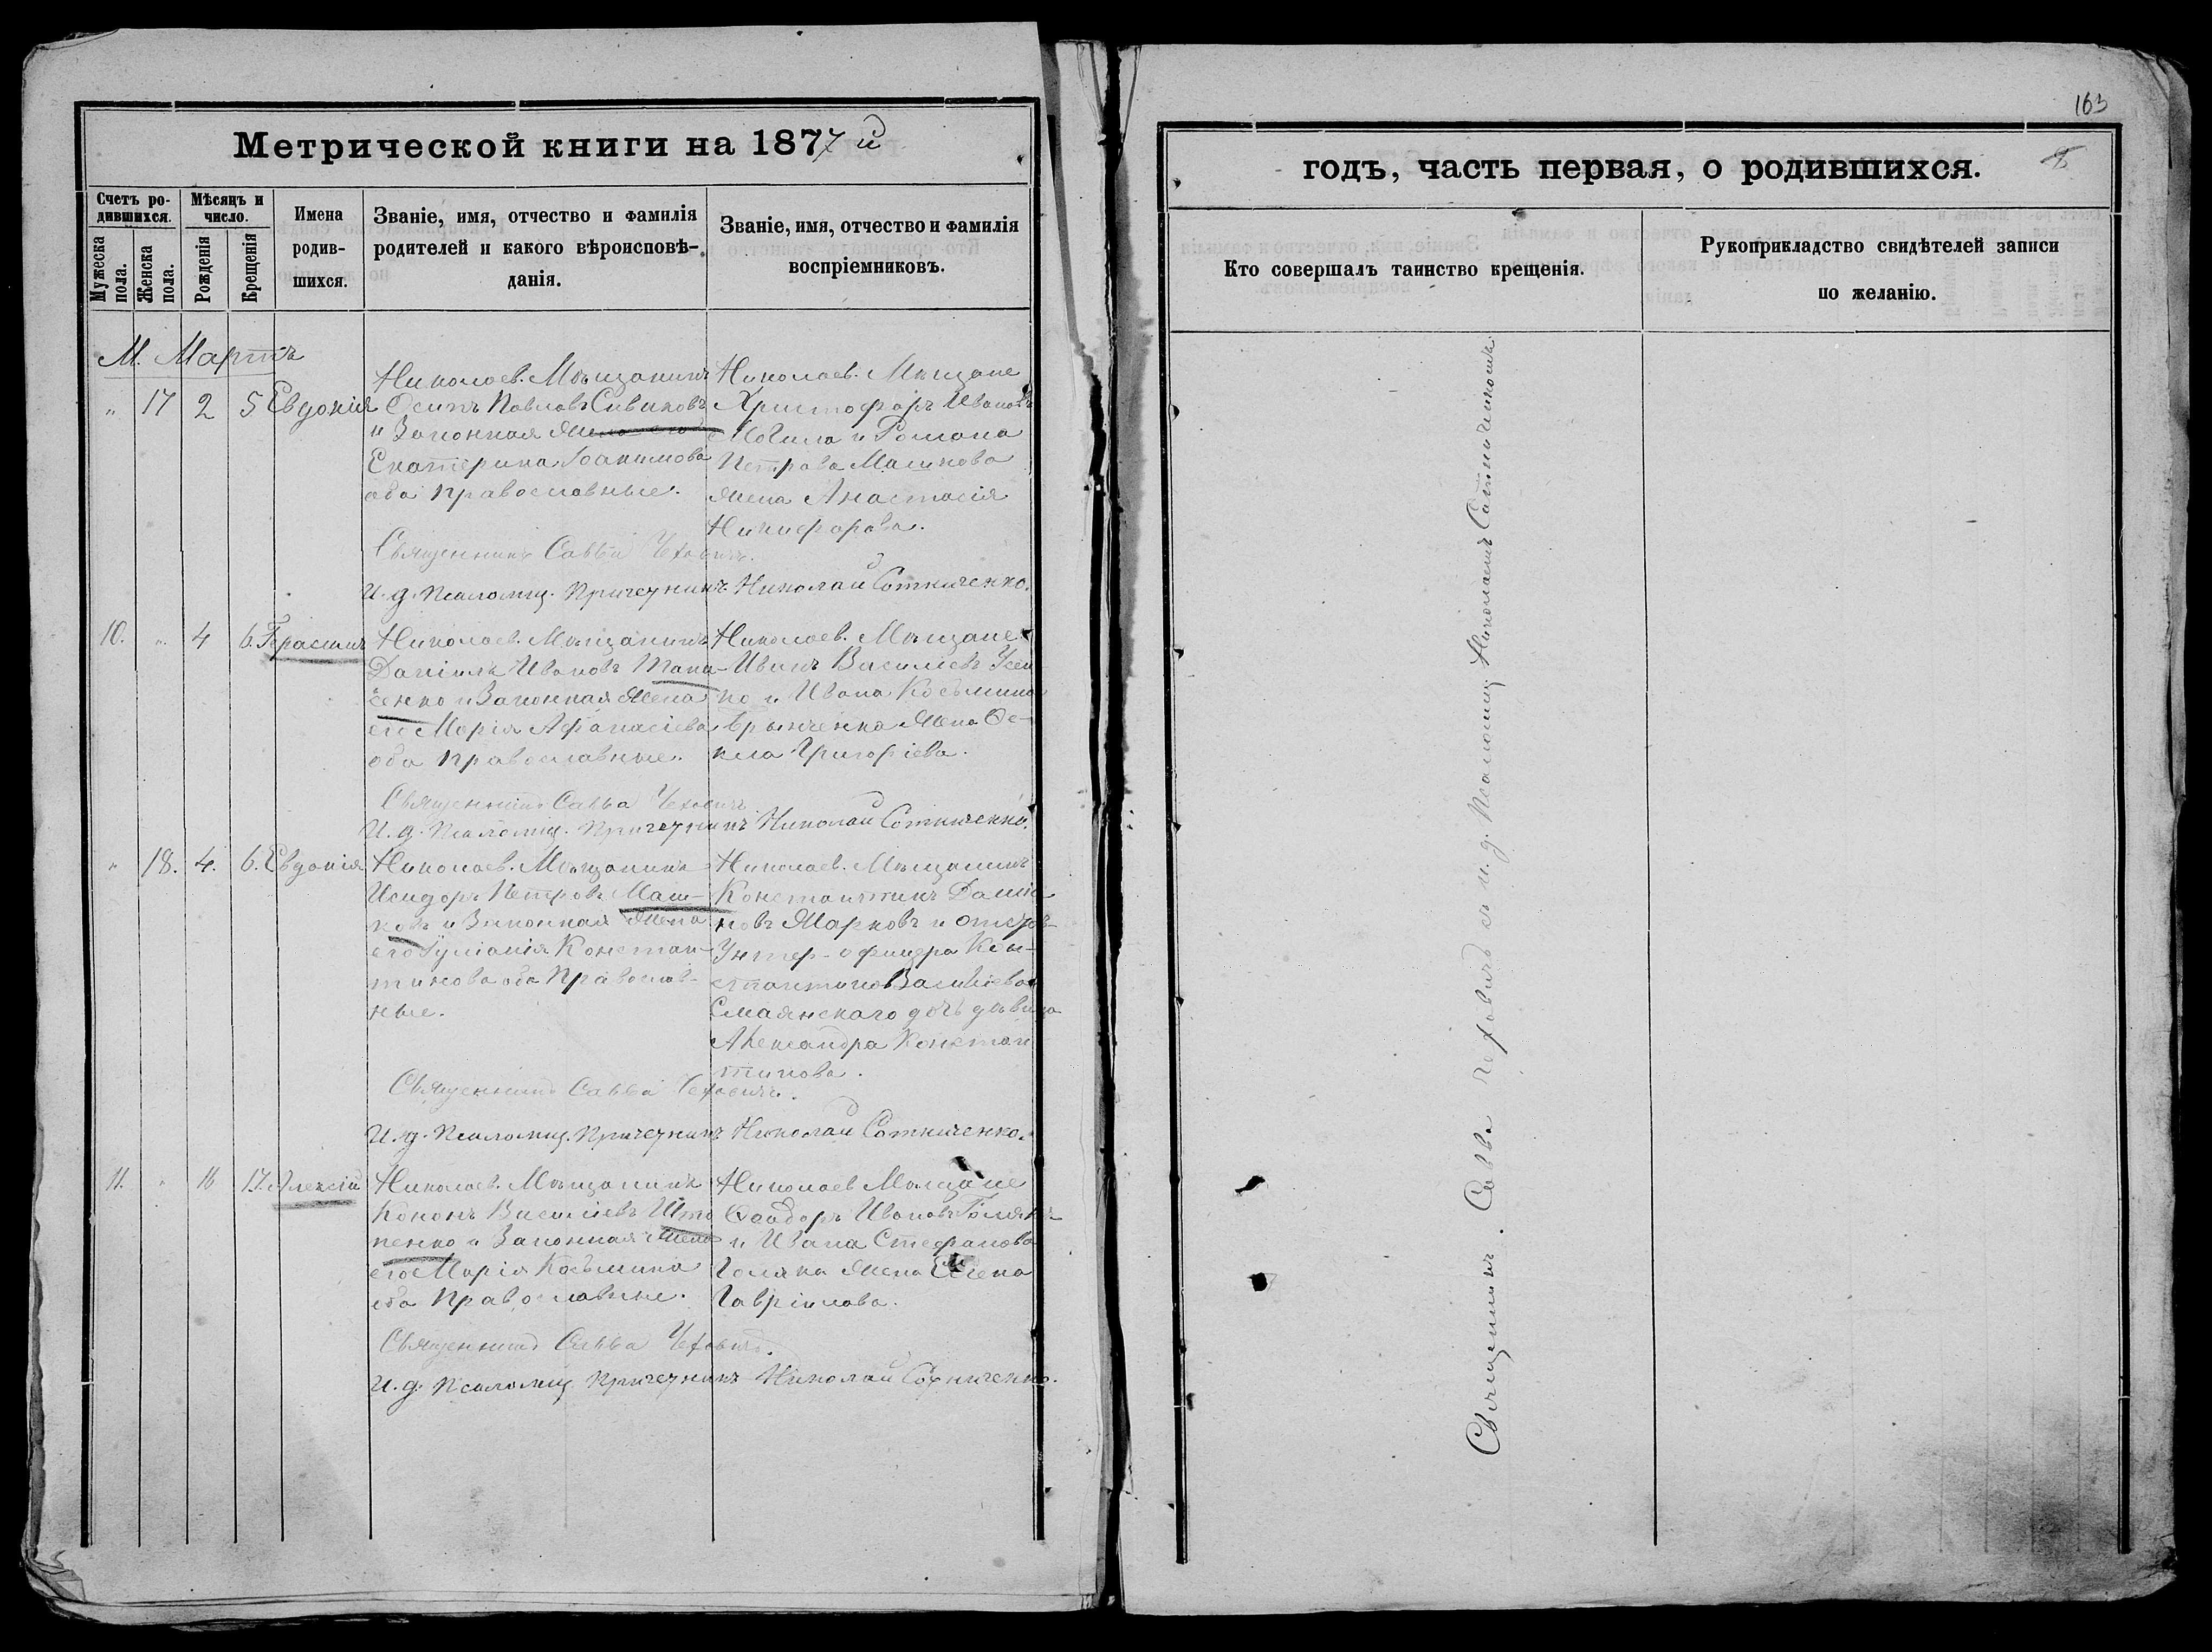 Метрической книги на 1877 й
Счетъ ро-
дившихся.
Мужеска
пола.
Женска
пола.
Мѣсяцъ и
число.
Рожденія
Крещенія
Имена
родив-
шихся.
Званіе, имя, отчество и фамилія
родителей и какого вѣроисповѣ-
данія.
Званіе, имя, отчество и фамилія
воспріемниковъ.
М. Мартъ
„ 17 2 5 Евдокія
Николаев. Мѣщанинъ
Осипъ Павловъ Сиваковъ
и Законная Жена его
Екатерина Іоакимова
оба православные.
Николаев. Мѣщане
Христофоръ Ивановъ
Могила и Романа
Петрова Машкова
жена Анастасія
Никифорова.
Священникъ Савва Чехович.
И. д. Псаломщ. Причетникъ Николай Сотниченко.
10. „ 4 6. Герасимъ
Николаев. Мѣщанинъ
Даніилъ Ивановъ
ченко и Законная Жена
его Марія Афанасіева
оба православные.
Николаев. Мѣщане
Иванъ Василіевъ Усен
ко и Ивана Косьмина
жена Ѳе-
кла Григоріева.
Священникъ Савва Чехович
И. д. Псаломщ. Причетникъ Николай Сотниченко.
„ 18. 4. 6. Евдокія
Николаев. Мѣщанинъ
Исидоръ Петровъ Маш-
ковъ и Законная Жена
его Іуліанія Констан-
тинова оба Православ-
ные.
Николаев. Мѣщанинъ
Константинъ
новъ Марковъ и
Унтер-офицера Кон-
стантина Василіева
Смаянскаго дочь дѣвица
Александра Констан
тинова.
Священникъ Савва Чехович.
И. д. Псаломщ. Причетникъ Николай Сотниченко.
11. „ 16 17. Алексій
Николаев. Мѣщанинъ
Кононъ Василіевъ
пенко и Законная Жена
его Марія Косьмина
оба Православные.
Николаев Мѣщане
Ѳеодоръ Ивановъ Голякъ
и Ивана Стефанова
Голяка жена Елена
Гавріилова.
Священникъ Савва Чехович.
И. д. Псаломщ. Причетникъ Николай Сотниченко.
163
годъ, часть первая, о родившихся.
Кто совершалъ таинство крещенія.
Рукоприкладство свидѣтелей записи
по желанію.
Священникъ Савва Чеховичъ съ и. д. Псаломщ. Николаемъ Сотниченкомъ.